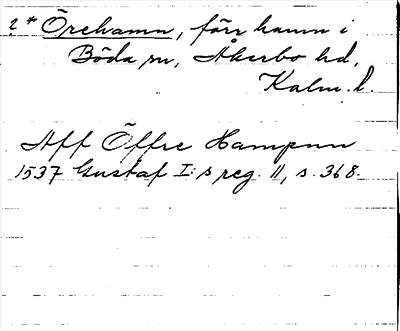 2* Örehamn, förr hamn i
Böda sn, Åkerbo hd,
Kalm. l.
Aff Öffre Hampnn
1537 Gustaf I:s reg. 11, s. 368.